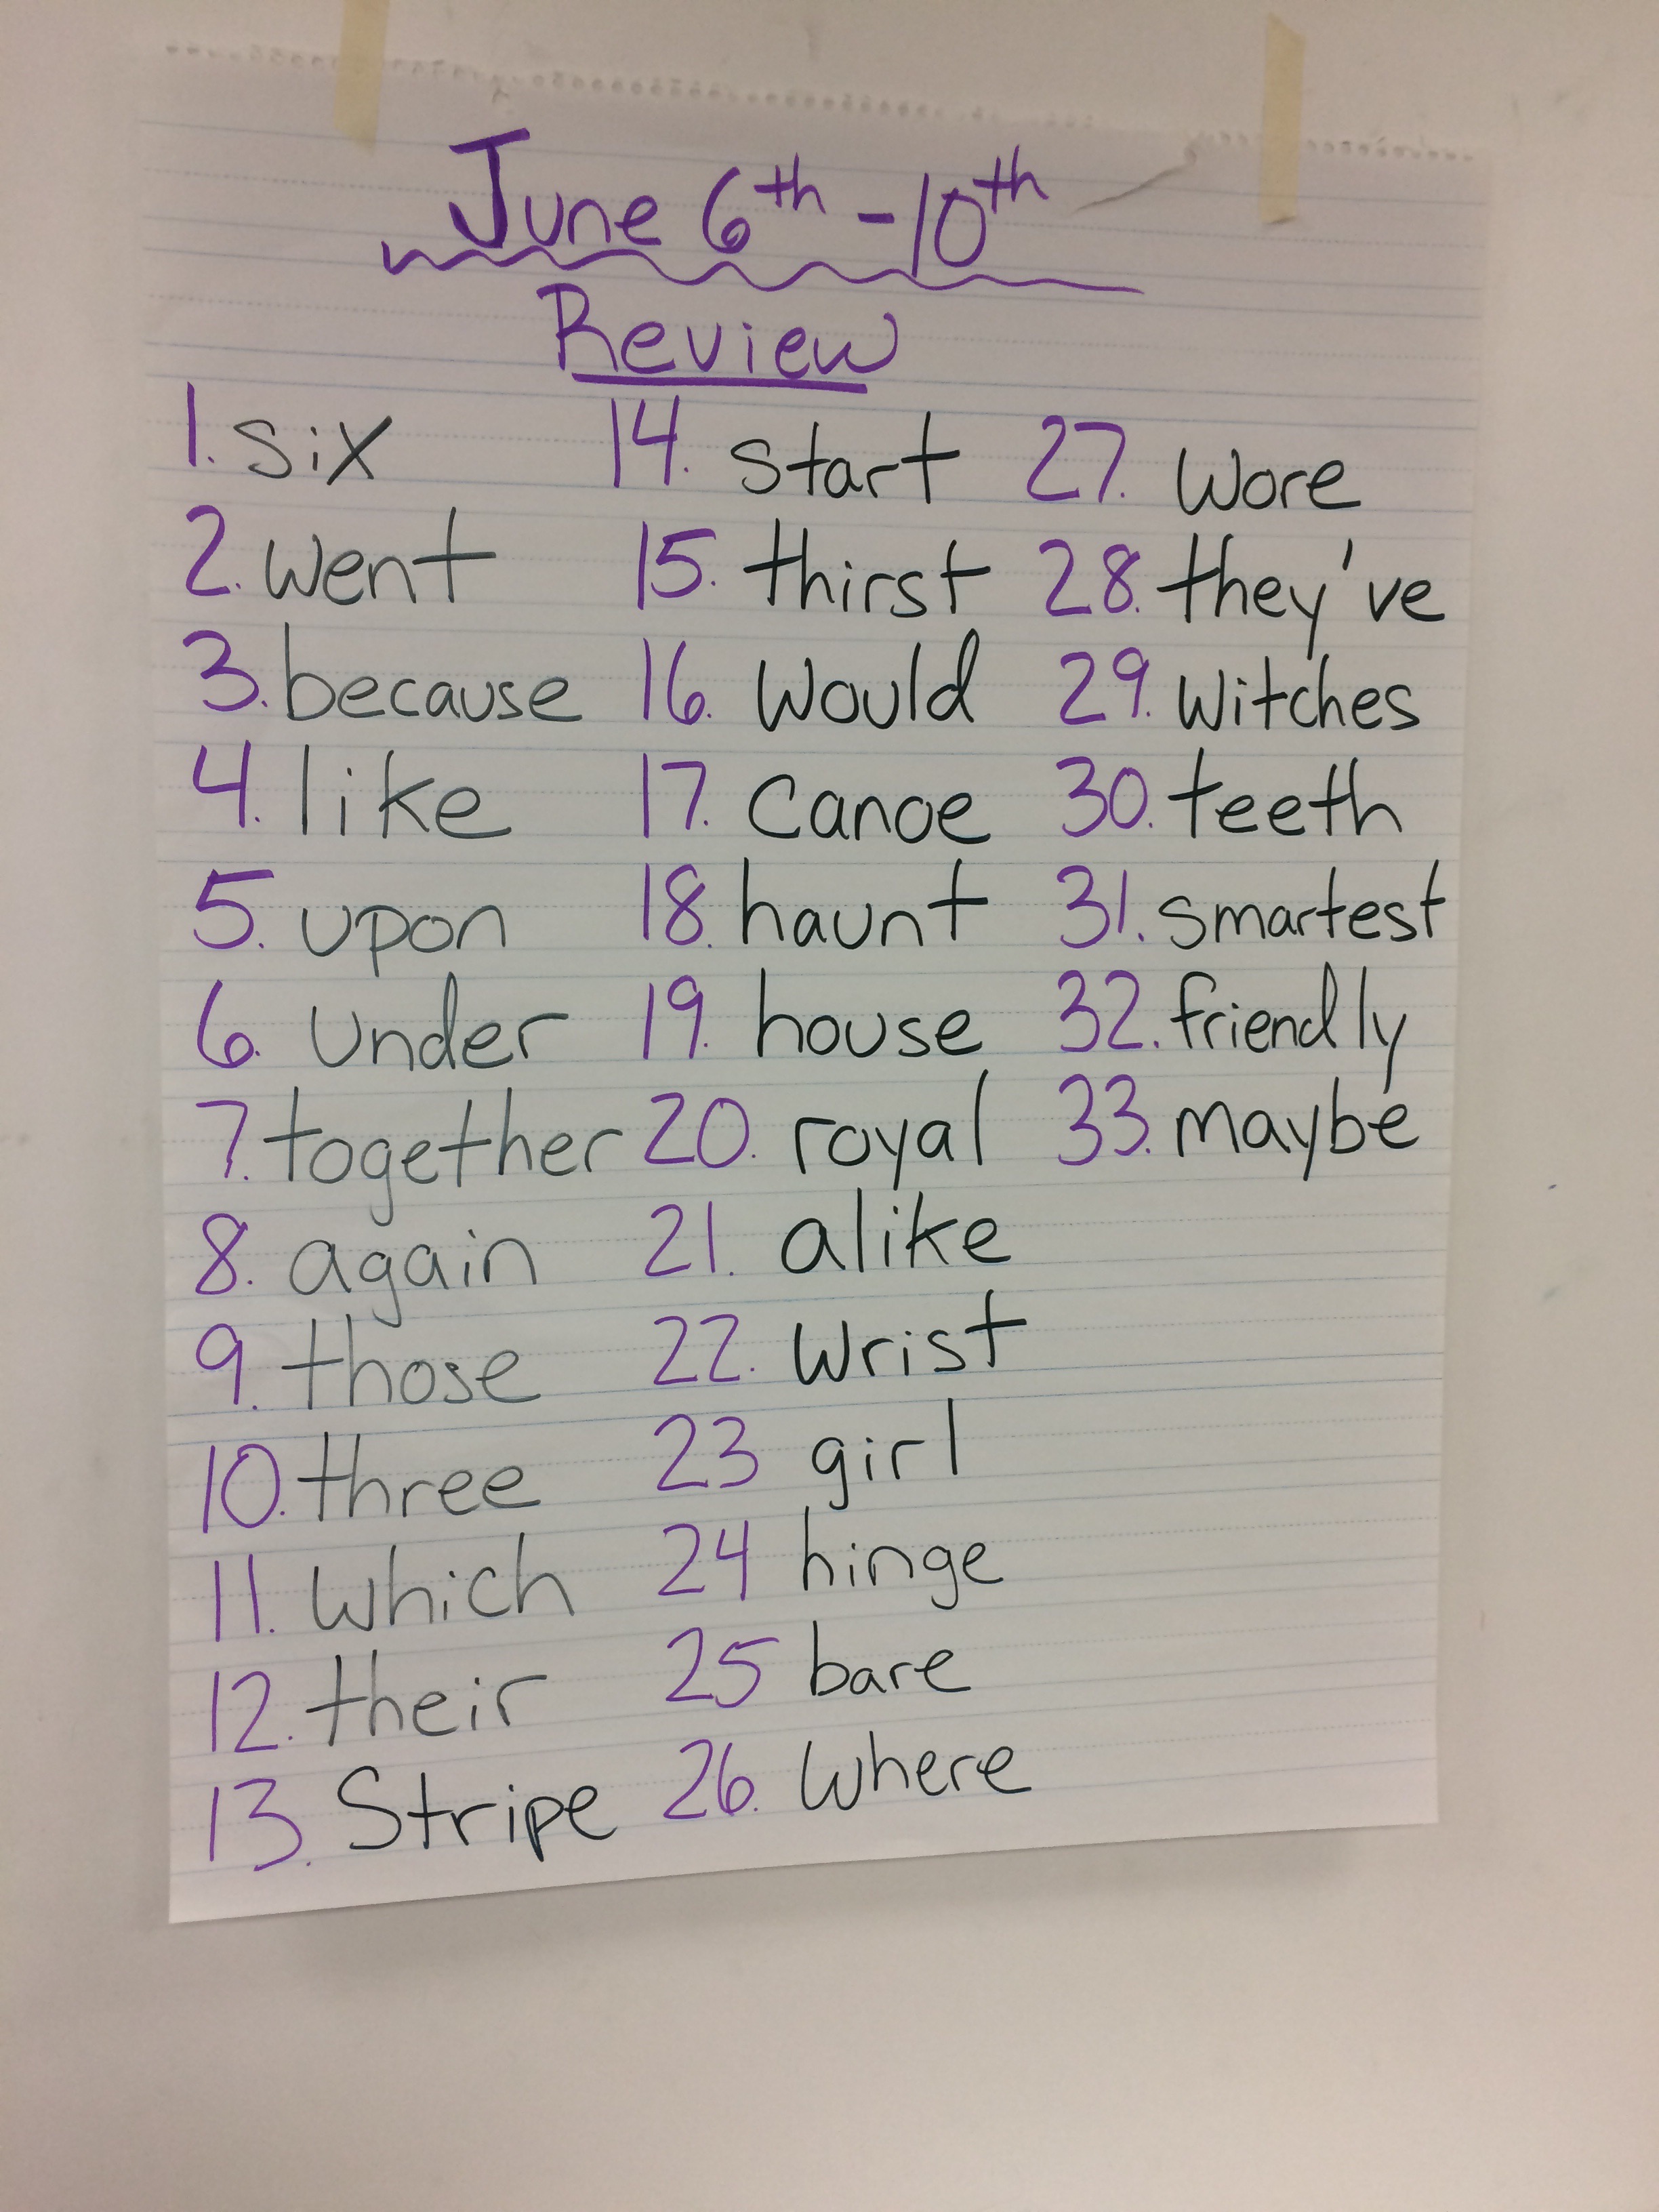 June 6th - 10th
Review
1. six
2. went
3. because
4. like
5. upon
6. under
7. together
8. again
9. those
10. three
11. which
12. their
13. Stripe
14. start
15. thirst
16. would
17. canoe
18. haunt
19. house
20. royal
21. alike
22. wrist
23 girl
24 hinge
25 bare
26. where
27. wore
28. they've
29. witches
30. teeth
31. smartest
32. friendly
33. maybe